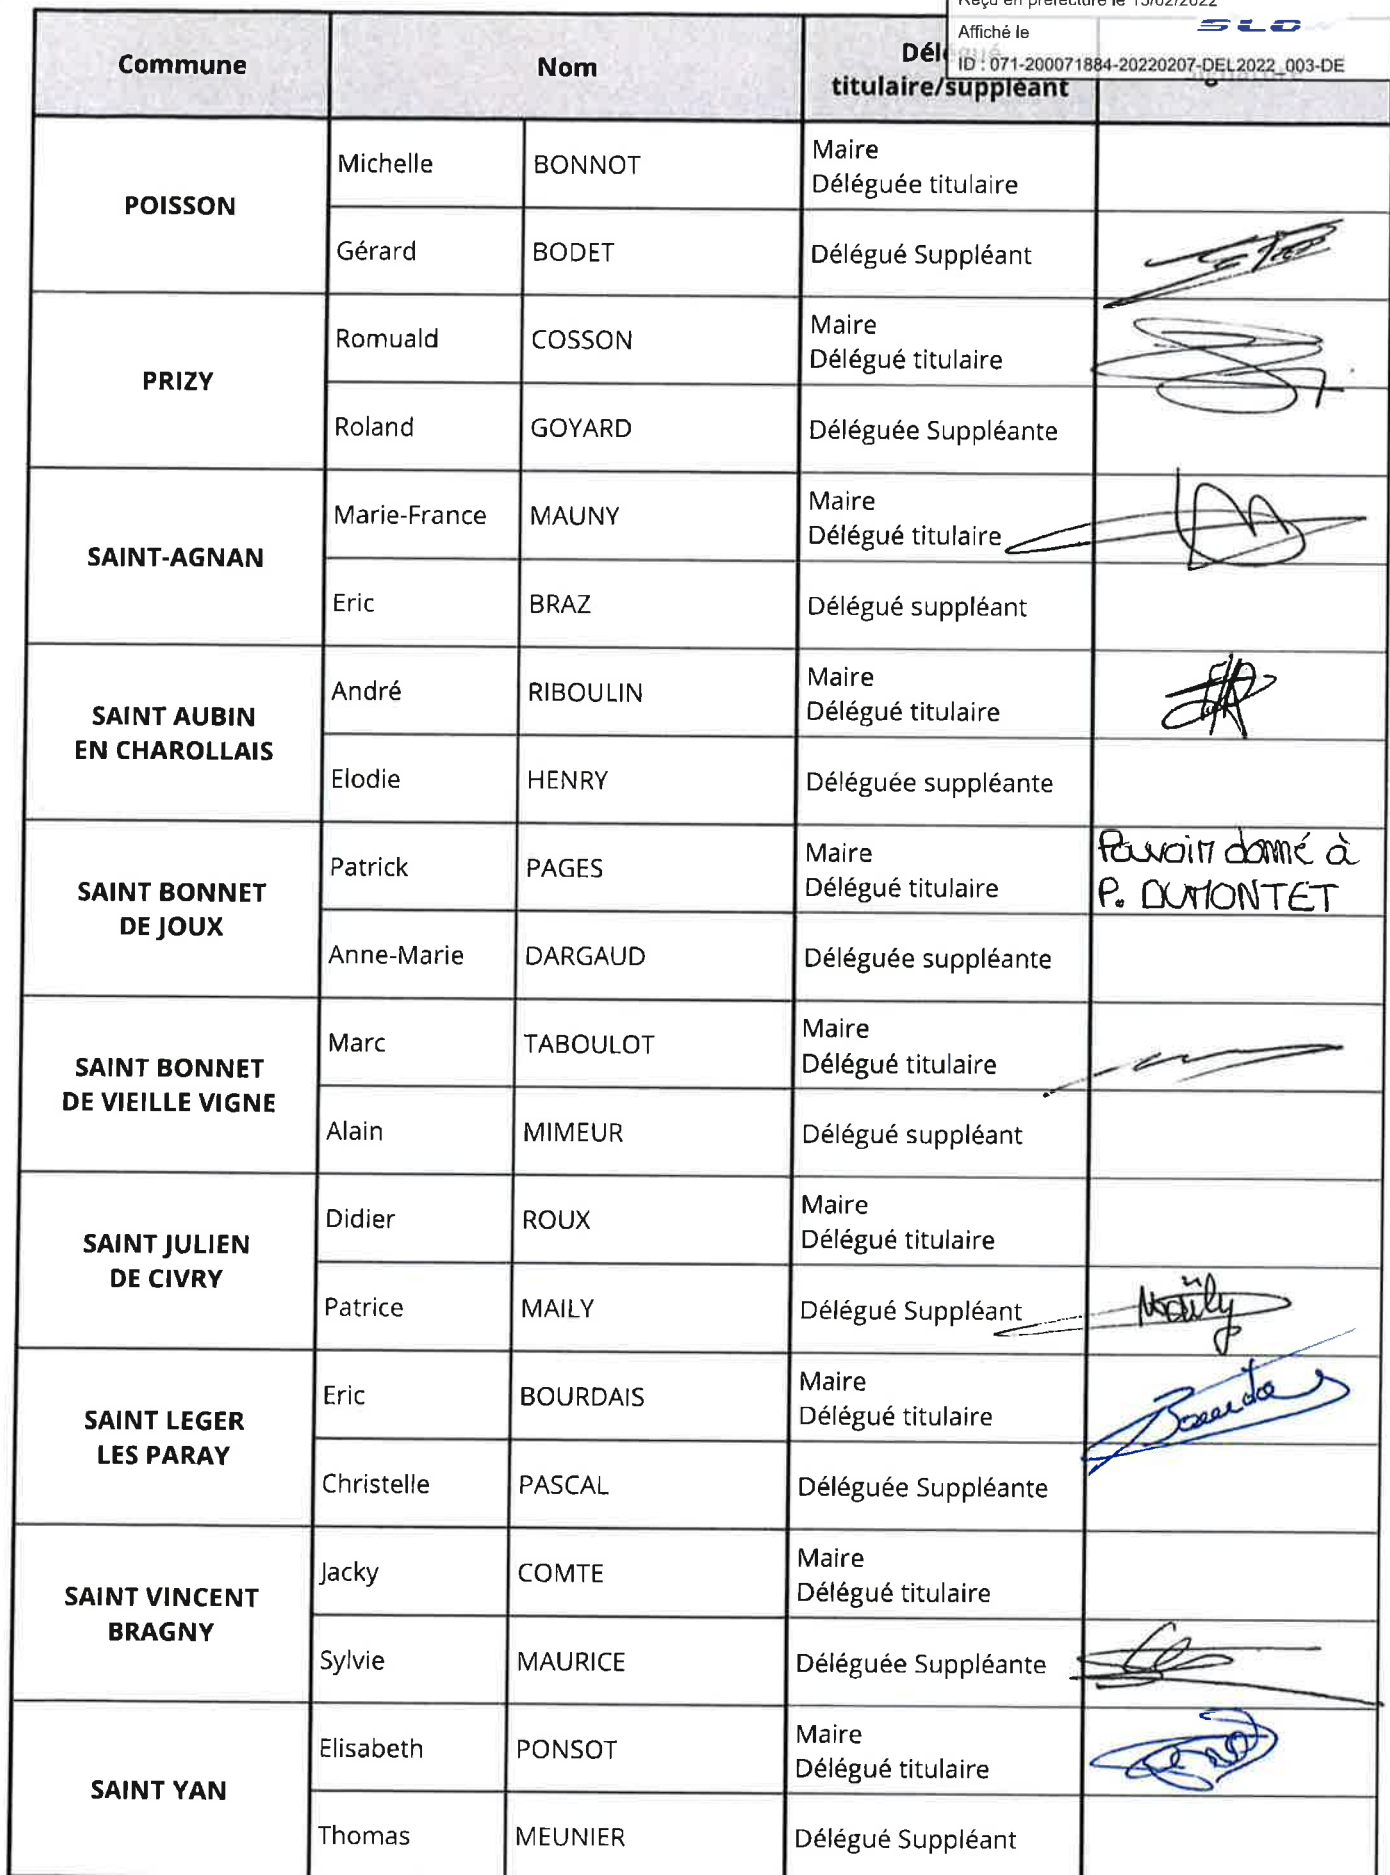 Reçu en préfecture le 15/02/2022
Affiché le
SLO
ID : 071-200071884-20220207-DEL2022_003-DE
Commune Nom Délégué
titulaire/suppléant
POISSON
Michelle BONNOT Maire
Déléguée titulaire
Gérard BODET Délégué Suppléant
PRIZY
Romuald COSSON Maire
Délégué titulaire
Roland GOYARD Déléguée Suppléante
SAINT-AGNAN
Marie-France MAUNY Maire
Délégué titulaire
Eric BRAZ Délégué suppléant
SAINT AUBIN
EN CHAROLLAIS
André RIBOULIN Maire
Délégué titulaire
Elodie HENRY Déléguée suppléante
SAINT BONNET
DE JOUX
Patrick PAGES Maire
Délégué titulaire
Pouvoir donné à
P. DUMONTET
Anne-Marie DARGAUD Déléguée suppléante
SAINT BONNET
DE VIEILLE VIGNE
Marc TABOULOT Maire
Délégué titulaire
Alain MIMEUR Délégué suppléant
SAINT JULIEN
DE CIVRY
Didier ROUX Maire
Délégué titulaire
Patrice MAILY Délégué Suppléant Maïly
SAINT LEGER
LES PARAY
Eric BOURDAIS Maire
Délégué titulaire
Christelle PASCAL Déléguée Suppléante
SAINT VINCENT
BRAGNY
Jacky COMTE Maire
Délégué titulaire
Sylvie MAURICE Déléguée Suppléante
SAINT YAN
Elisabeth PONSOT Maire
Délégué titulaire
Thomas MEUNIER Délégué Suppléant